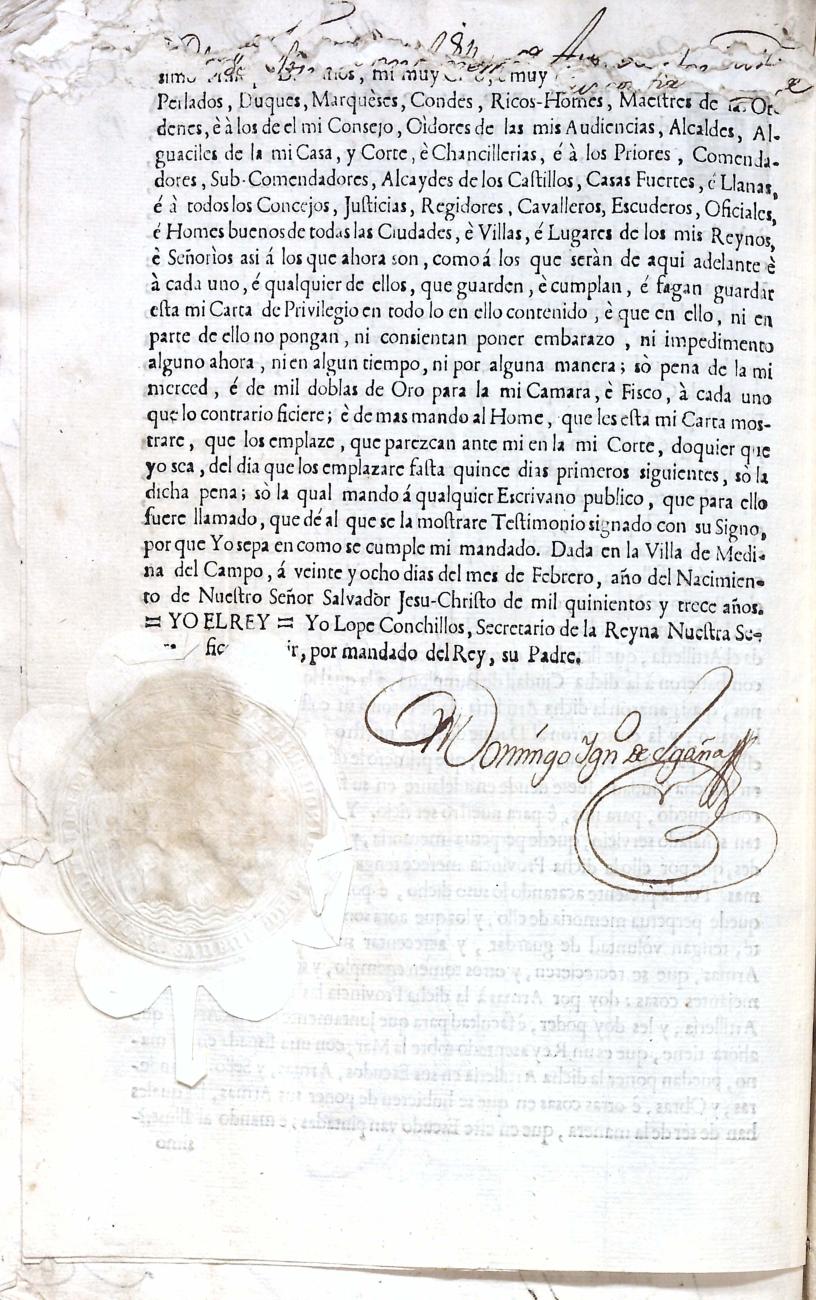 mi muy
Perlados, Duques, Marquèses, Condes, Ricos-Homes, Maestres de la Or-
denes, è à los de el mi Consejo, Oìdores de las mis Audiencias, Alcaldes, Al-
guaciles de la mi Casa, y Corte, è Chancillerias, é à los Priores, Comenda-
dores, Sub-Comendadores, Alcaydes de los Castillos, Casas Fuertes, é Llanas,
é à todos los Concejos, Justicias, Regidores, Cavalleros, Escuderos, Oficiales,
é Homes buenos de todas las Ciudades, è Villas, é Lugares de los mis Reynos,
è Señorìos asi á los que ahora son, como á los que seràn de aqui adelante è
à cada uno, é qualquier de ellos, que guarden, è cumplan, é fagan guardar
esta mi Carta de Privilegio en todo lo en ello contenido, è que en ello, ni en
parte de ello no pongan, ni consientan poner embarazo, ni impedimento
alguno ahora, ni en algun tiempo, ni por alguna manera; sò pena de la mi
merced, é de mil doblas de Oro para la mi Camara, è Fisco, à cada uno
que lo contrario ficiere; è de mas mando al Home, que les esta mi Carta mos-
trare, que los emplaze, que parezcan ante mi en la mi Corte, doquier que
yo sea, del dia que los emplazare fasta quince dias primeros siguientes, sò la
dicha pena; sò la qual mando á qualquier Escrivano publico, que para ello
fuere llamado, que dé al que se la mostrare Testimonio signado con su Signo,
por que Yo sepa en como se cumple mi mandado. Dada en la Villa de Medi-
na del Campo, á veinte y ocho dias del mes de Febrero, año del Nacimien-
to de Nuestro Señor Salvador Jesu-Christo de mil quinientos y trece años.
= YO EL REY = Yo Lope Conchillos, Secretario de la Reyna Nuestra Se-
por mandado del Rey, su Padre.
Domingo Ign de Egaña